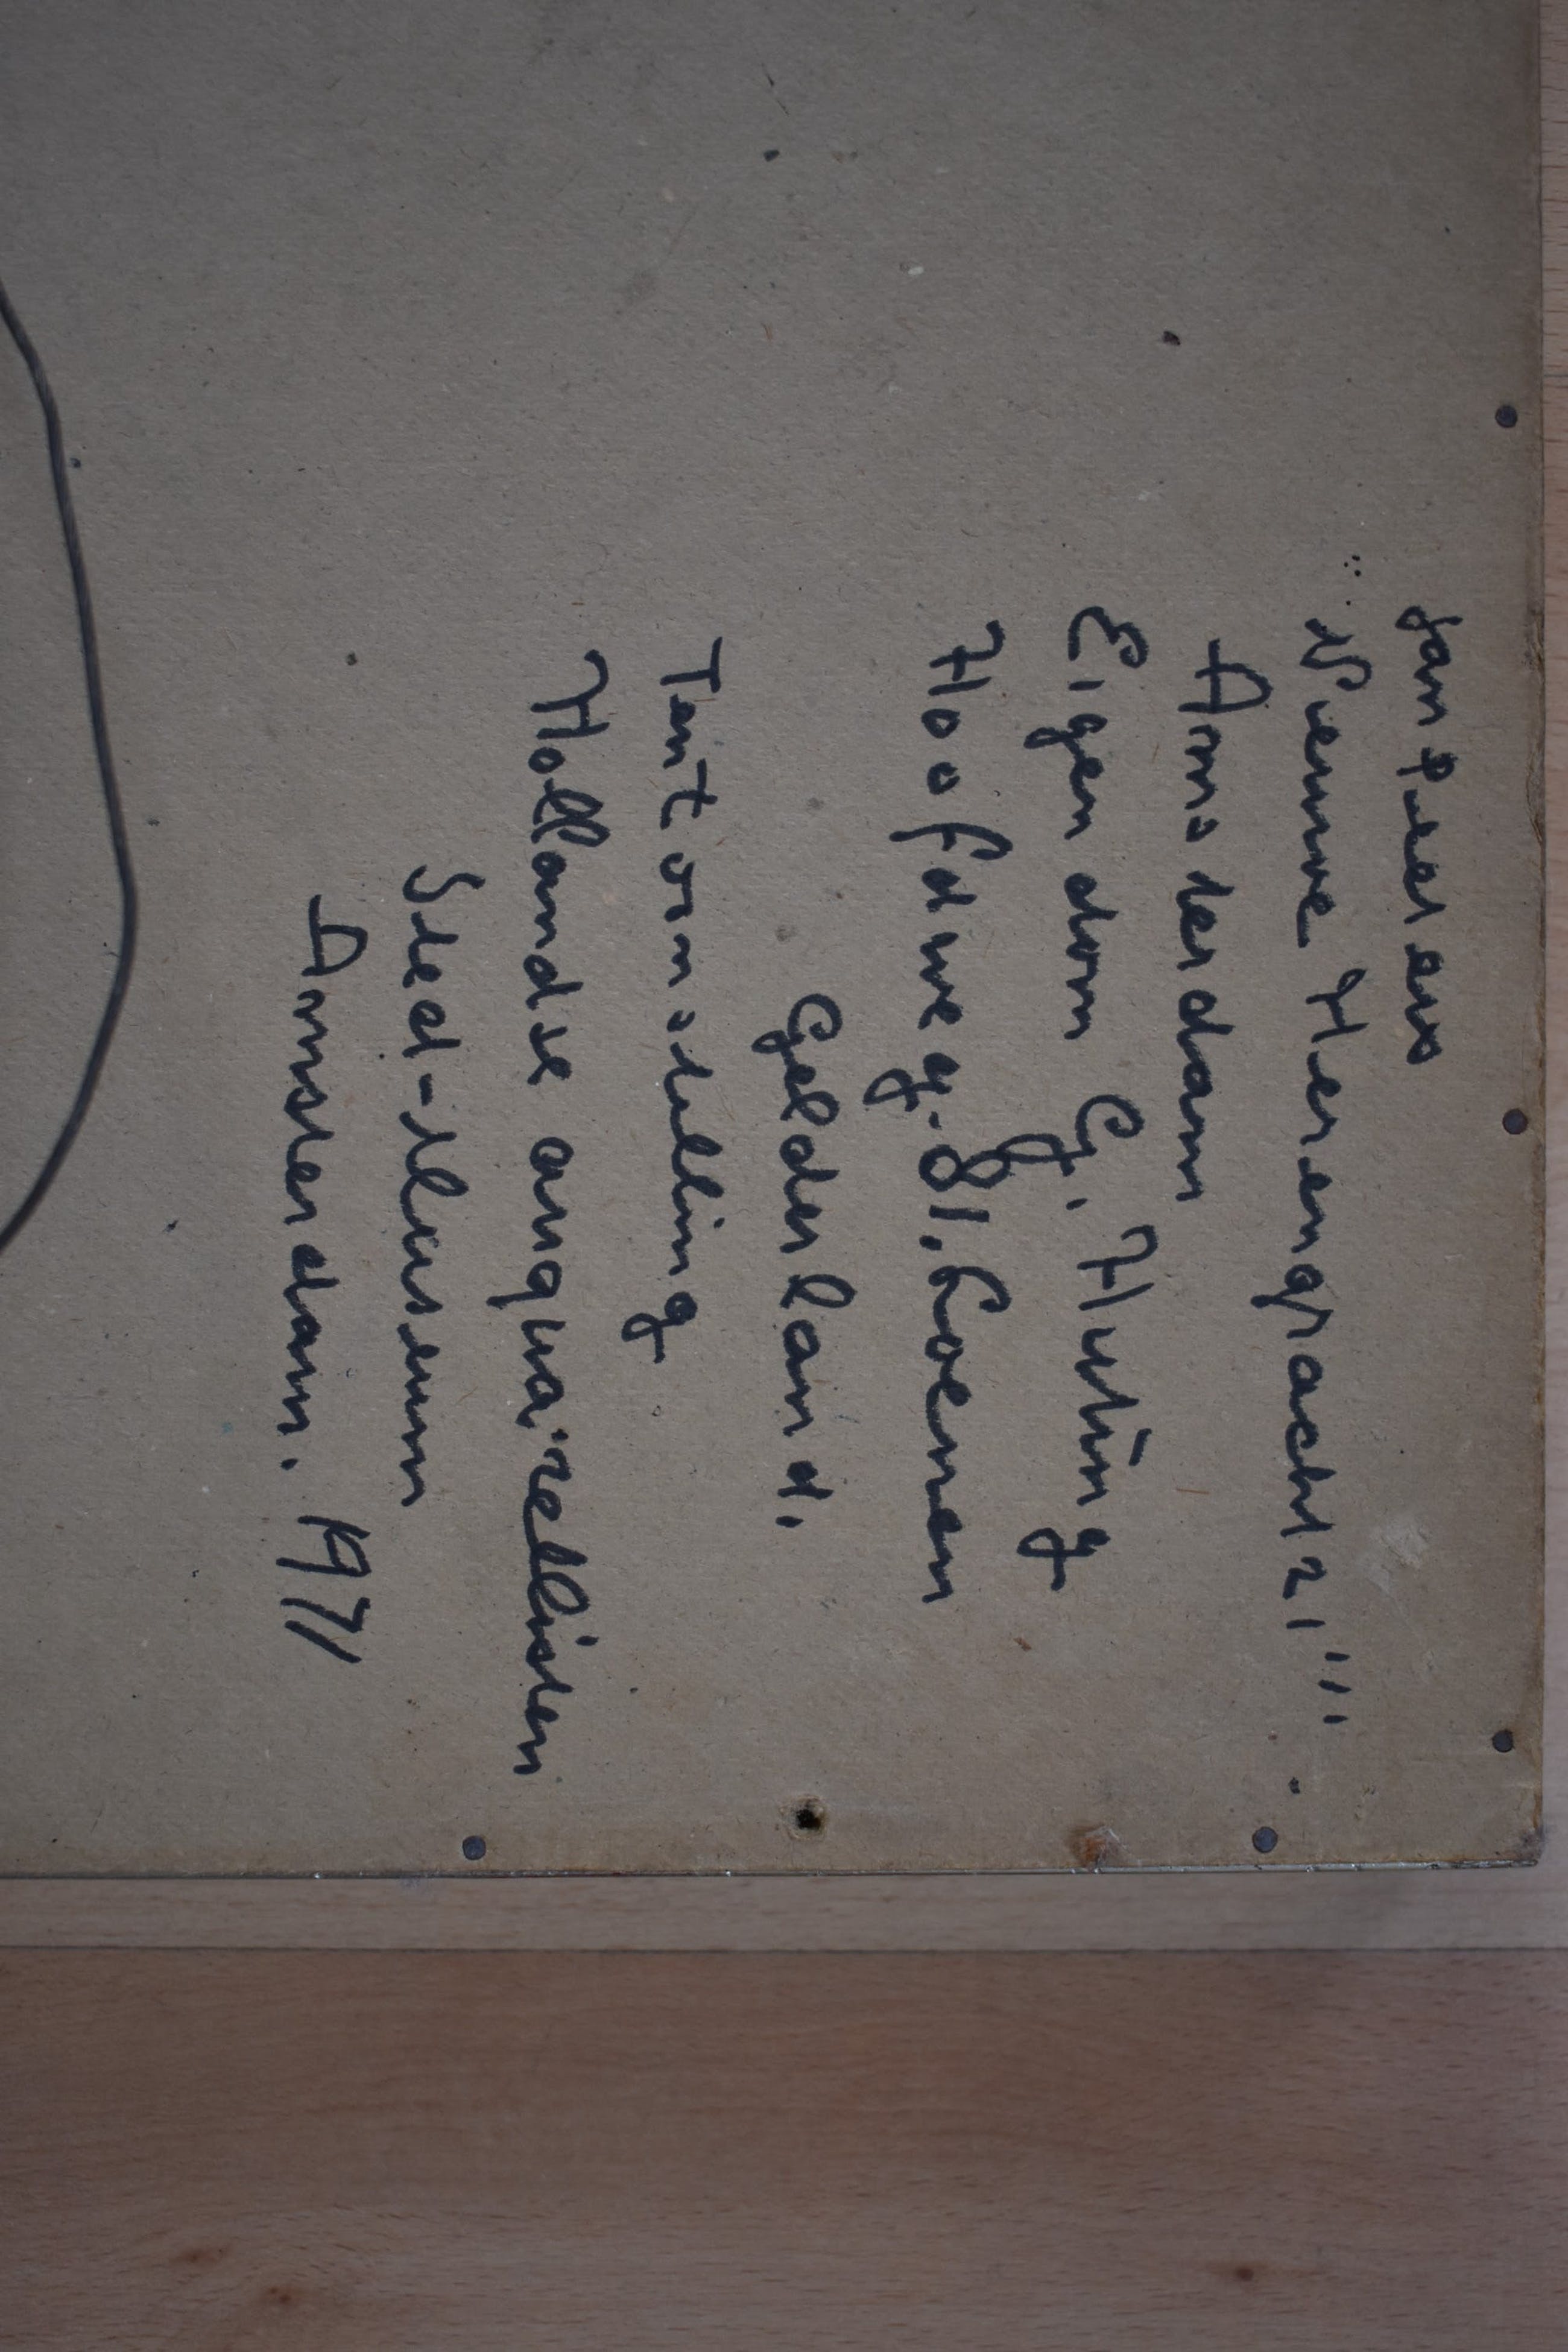 Jan Peeters
Nieuwe Herengracht 21'''
Amsterdam
Eigendom G. Huting
Hoofdweg. 81. Loenen
Gelderland.
Tentoonstelling
Hollandse auquarellisten
Sted-Museum
Amsterdam. 1971